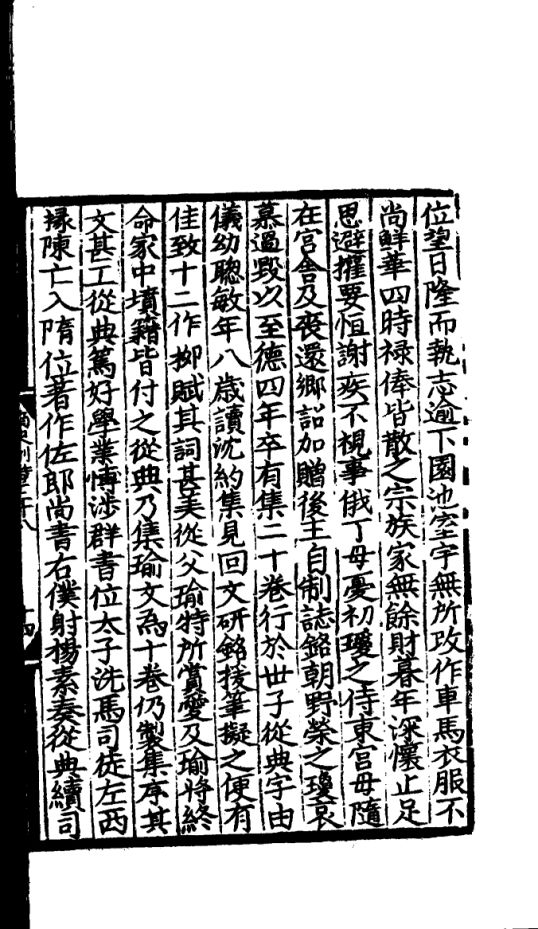 位望日隆而執志逾下園池室宇無所改作車馬衣服不
尚鮮華四時禄俸皆散之宗族家無餘財暮年深懷止足
思避權要恒謝疾不視事俄丁母憂初瓊之侍東宮母隨
在官舍及喪還鄉詔加贈後主自制誌銘朝野榮之瓊哀
慕過毀以至德四年卒有集二十卷行於世子從典字由
儀幼聰敏年八歲讀沈約集見回文研銘援筆擬之便有
佳致十二作柳賦其詞甚美從父瑜特所賞愛及瑜將終
命家中墳籍皆付之從典乃集瑜文為十卷仍製集序其
文甚工從典篤好學業博涉群書位太子洗馬司徒左西
掾陳亡入隋位著作佐郎尚書右僕射楊素奏從典續司
十四